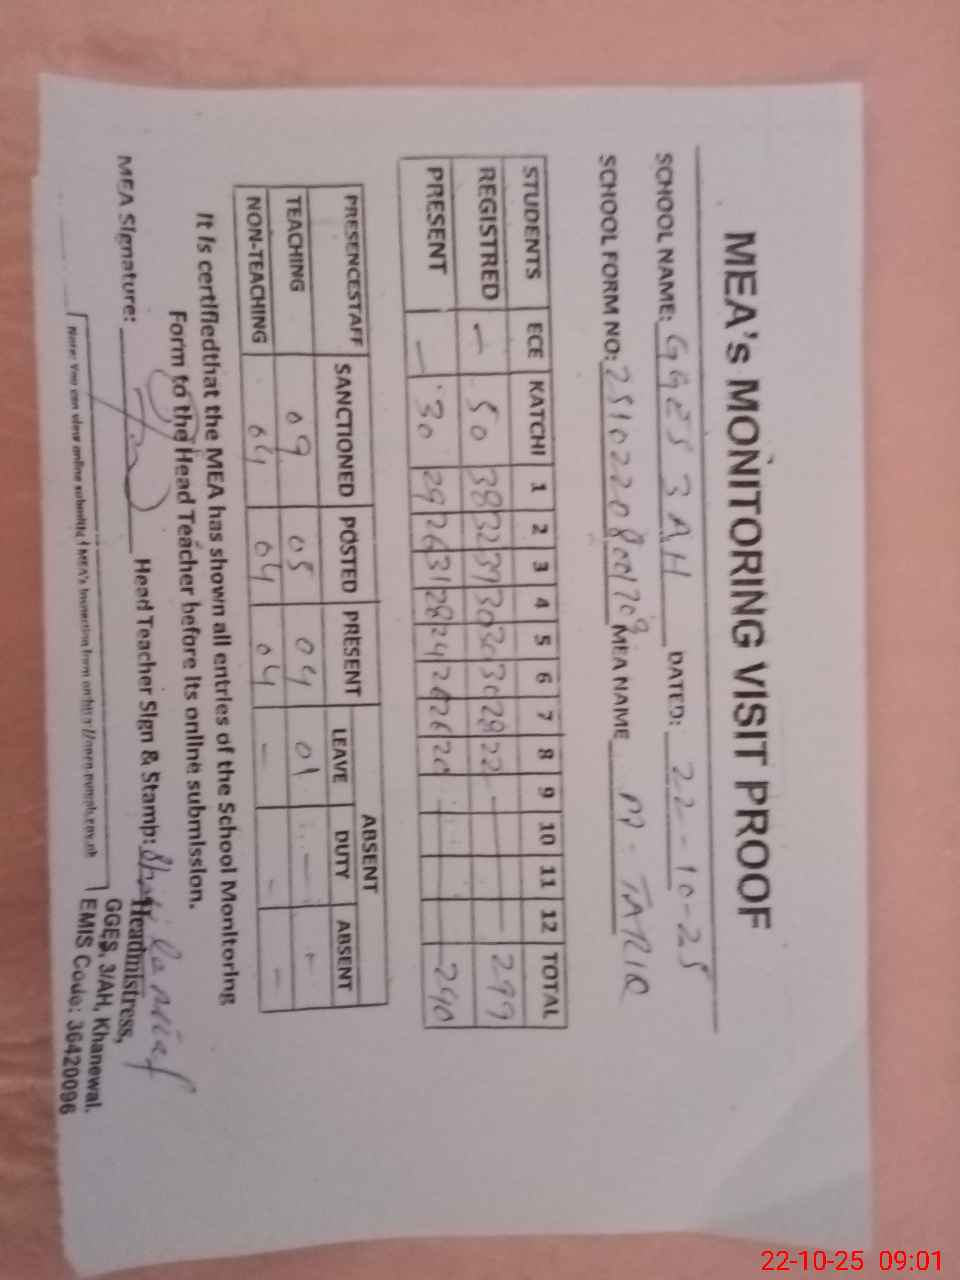 MEA's MONITORING VISIT PROOF
SCHOOL NAME: GGES 3 AH DATED: 22-10-25
SCHOOL FORM NO: MEA NAME TARIQ
STUDENTS ECE KATCHI 1 2 3 4 5 6 7 8 9 10 11 12 TOTAL
REGISTRED — 50 38 32 39 30 30 30 28 22 — 299
PRESENT — 30 29 26 31 28 24 26 26 20 240
PRESENCESTAFF SANCTIONED POSTED PRESENT ABSENT
LEAVE DUTY ABSENT
TEACHING 09 05 04 01 — -
NON-TEACHING 04 04 04 — - -
It is certifiedthat the MEA has shown all entries of the School Monitoring
Form to the Head Teacher before its online submission.
MEA Signature: Head Teacher Sign & Stamp:
Headmistress,
GGES, 3/AH, Khanewal.
EMIS Code: 36420096
Note: You can view online submitted MEA's
22-10-25 09:01